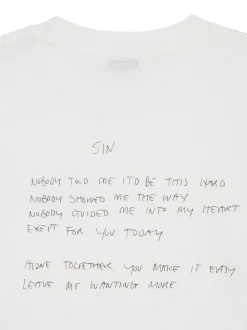 SIN
NOBODY TOLD ME IT'D BE THIS HARD
NOBODY SHOWED ME THE WAY
NOBODY GUIDED ME INTO MY HEART
EXEPT FOR YOU TODAY
ALONE TOGETHER, YOU MAKE IT EASY
LEAVE ME WANTING MORE